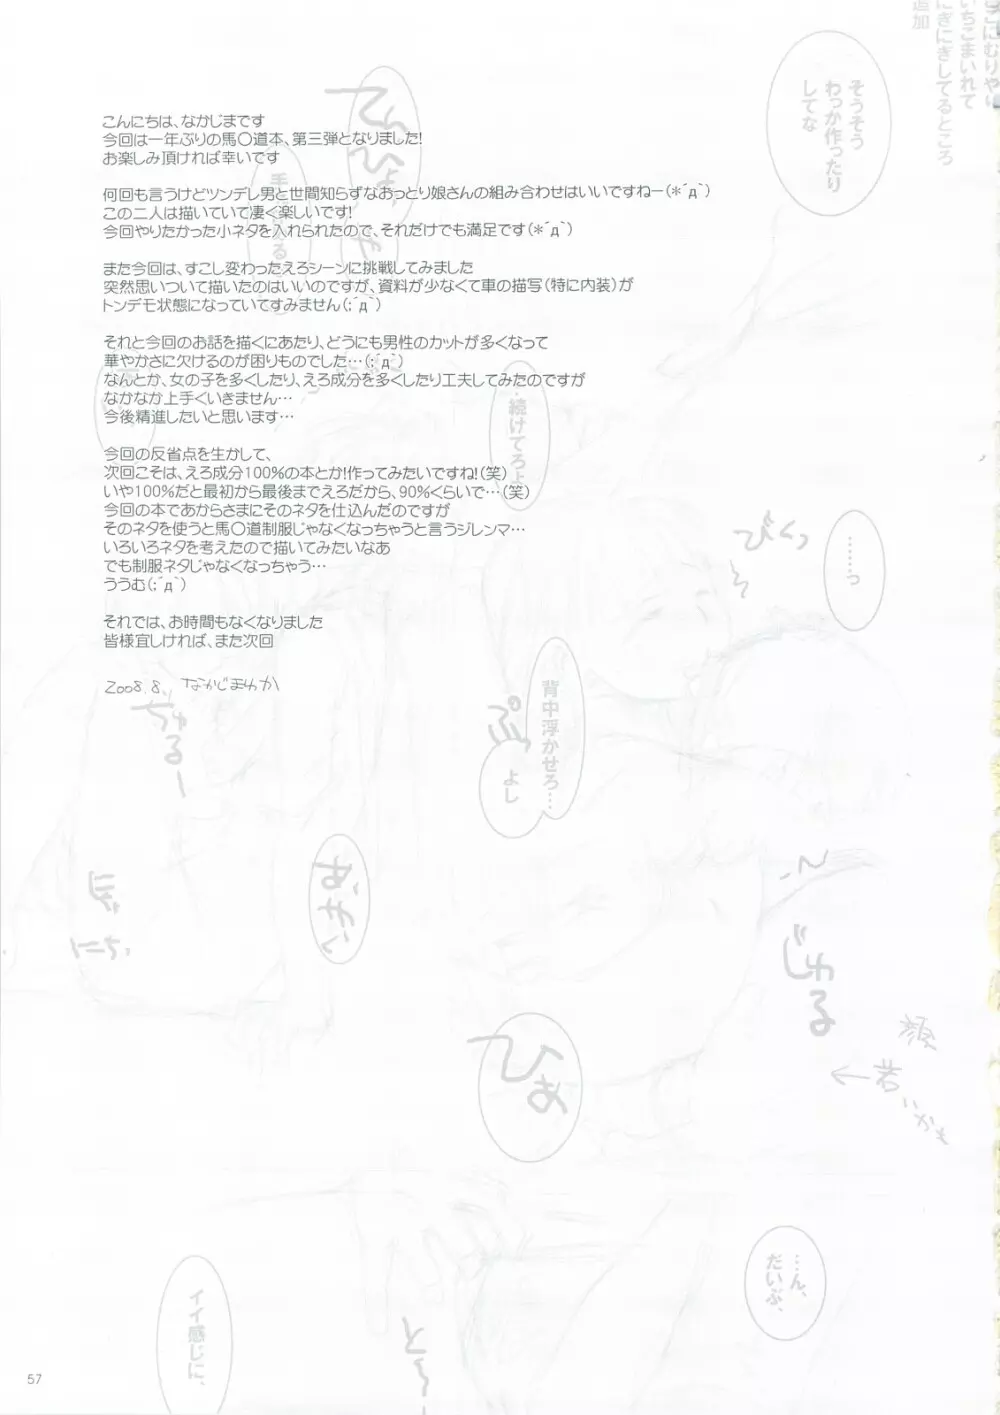 こんにちは、なかじまです
今回は一年ぶりの馬〇道本、第三弾となりました!
お楽しみ頂ければ幸いです
何回も言うけどツンデレ男と世間知らずなおっとり娘さんの組み合わせはいいですねー(*´д`)
この二人は描いていて凄く楽しいです!
今回やりたかった小ネタを入れられたので、それだけでも満足です(*´д`)
また今回は、すこし変わったえろシーンに挑戦してみました
突然思いついて描いたのはいいのですが、資料が少なくて車の描写(特に内装)が
トンデモ状態になっていてすみません(;´д`)
それと今回のお話を描くにあたり、どうにも男性のカットが多くなって
華やかさに欠けるのが困りものでした…(;´д`)
なんとか、女の子を多くしたり、えろ成分を多くしたり工夫してみたのですが
なかなか上手くいきません…
今後精進したいと思います…
今回の反省点を生かして、
次回こそは、えろ成分100%の本とか!作ってみたいですね!(笑)
いや100%だと最初から最後までえろだから、90%くらいで…(笑)
今回の本であからさまにそのネタを仕込んだのですが
そのネタを使うと馬〇道制服じゃなくなっちゃうと言うジレンマ…
いろいろネタを考えたので描いてみたいなあ
でも制服ネタじゃなくなっちゃう…
ううむ(;´д`)
それでは、お時間もなくなりました
皆様宜しければ、また次回
2008.8. なかじまゆか
いちごまいれて
にぎにぎしてるところ
追加
そうそう
わっか作ったり
してな
…続けてろよ
びくっ
………っ
背中浮かせろ…
よし
ぷっ
ちゅるー
じゅる
ひぁ
…ん、
だいぶ、
イイ感じに、
と
57